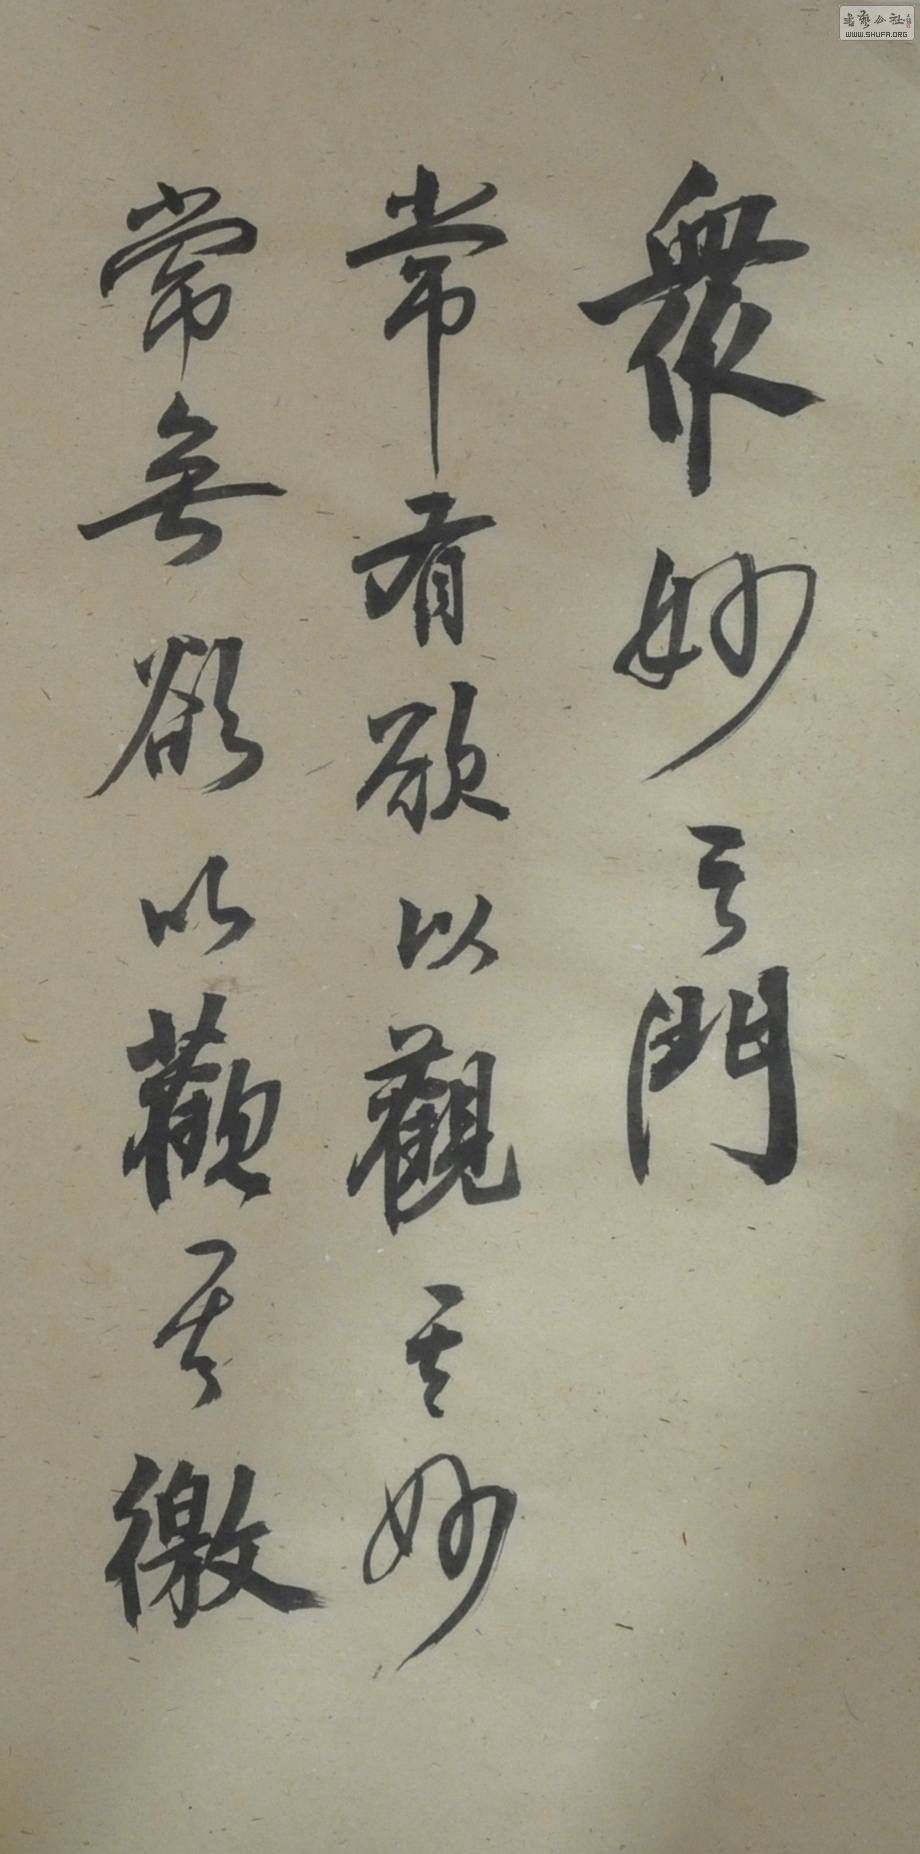 眾妙之門
常有欲以觀其妙
常無欲以觀其徼
書藝公社
WWW.SHUFA.ORG